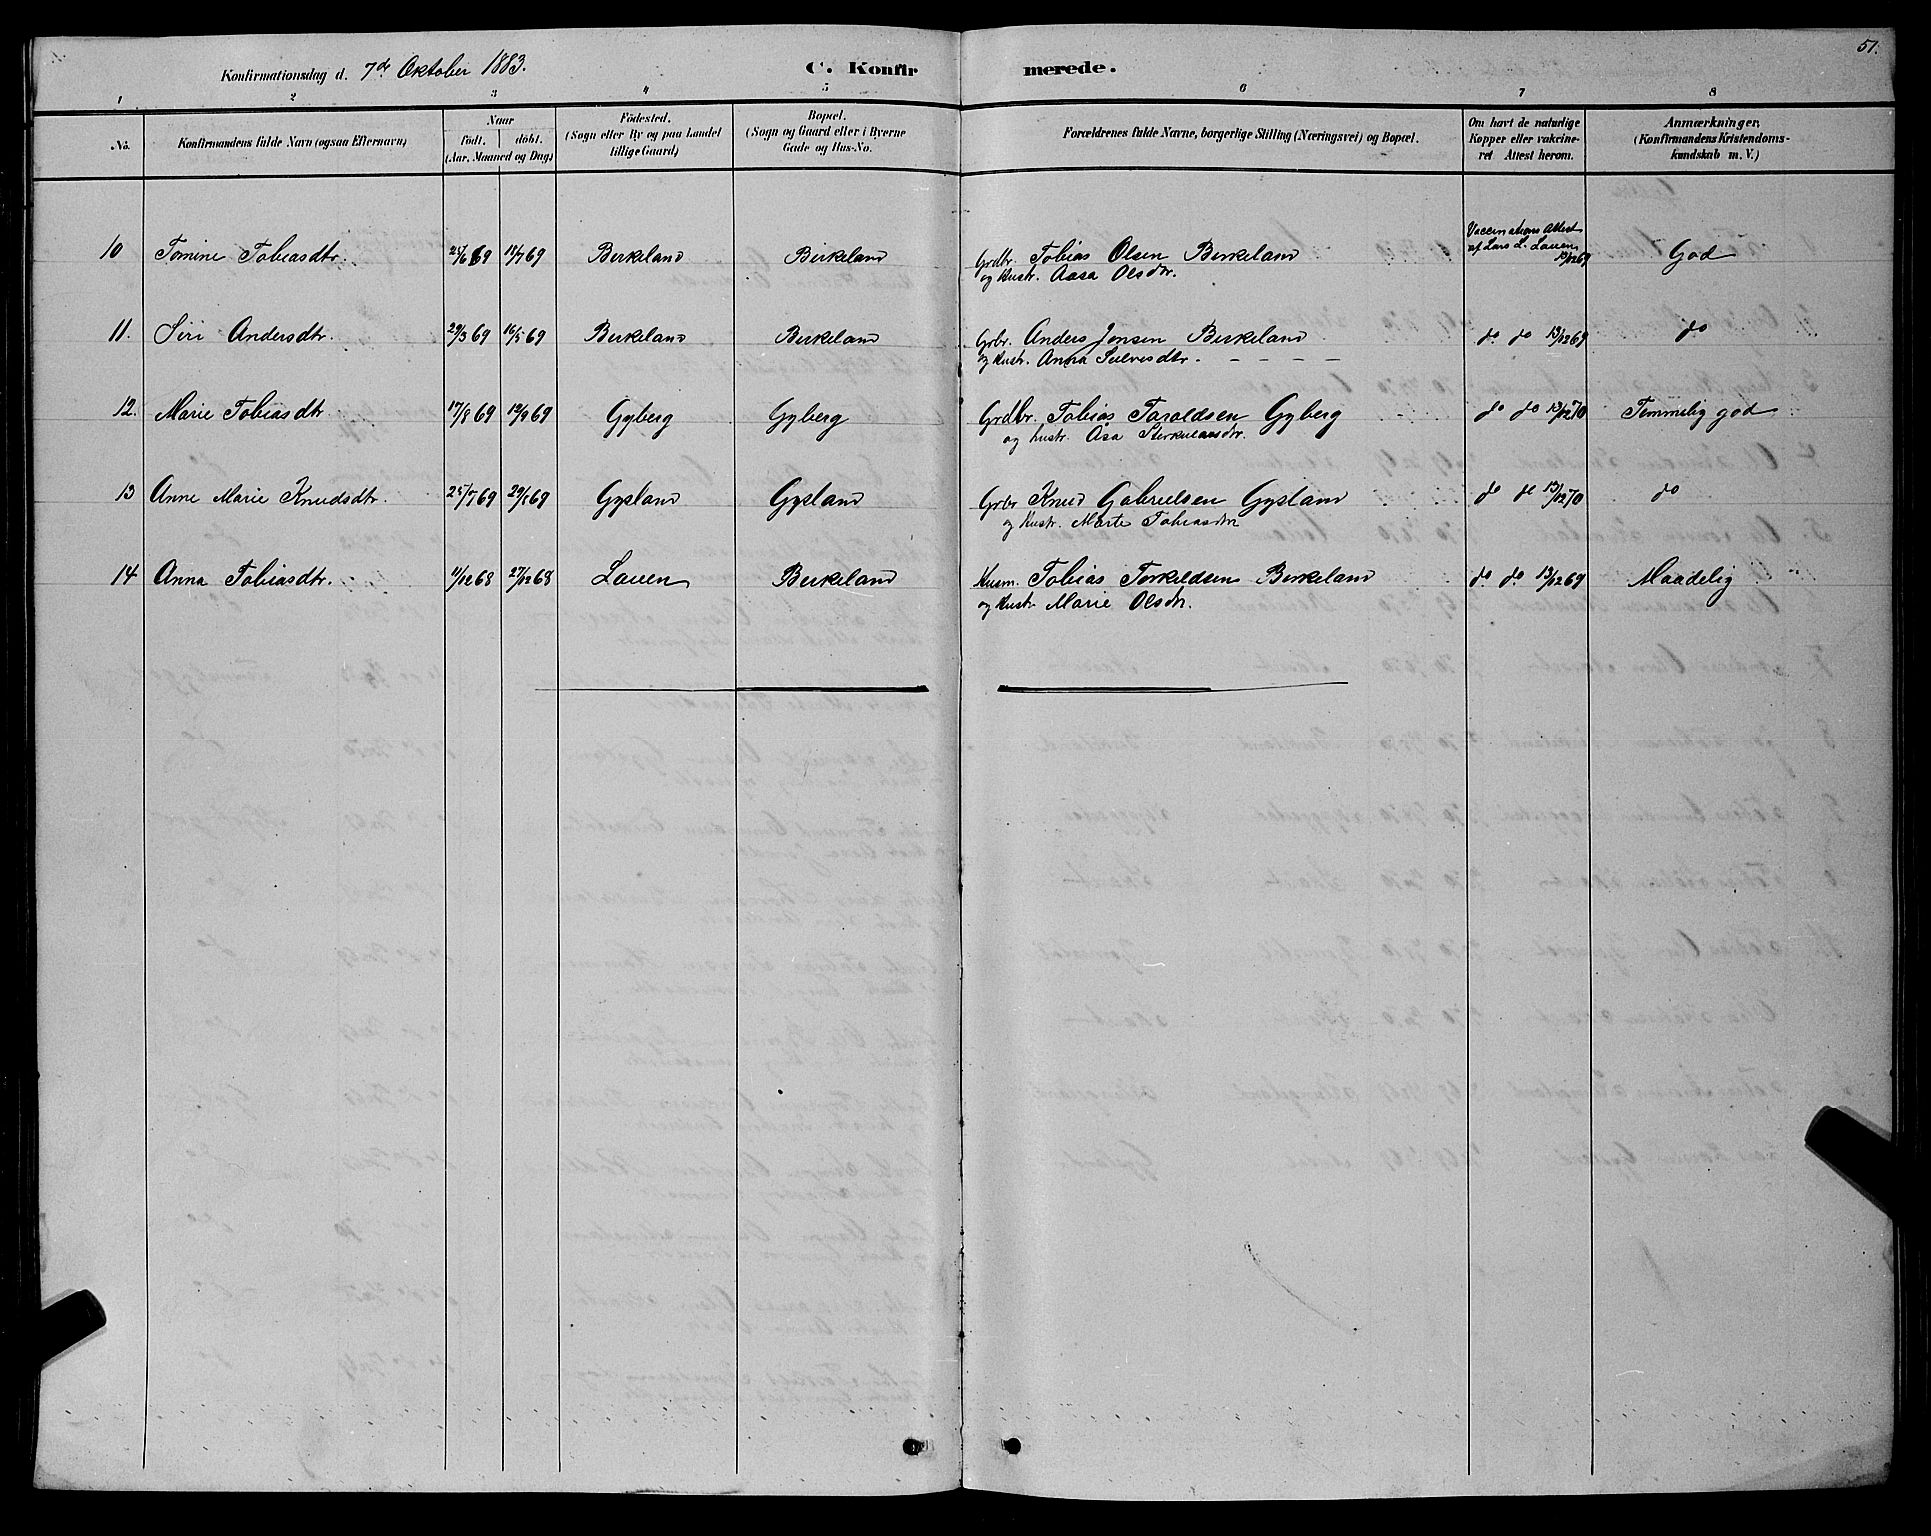 51.
Konfirmationsdag d. 7de Oktober 1883.
C. Konfirmerede.
1 2 3 4 5 6 7 8
No.
Konfirmandens fulde Navn (ogsaa Efternavn)
Naar
födt. döbt.
(Aar, Maaned og Dag)
Födested.
(Sogn eller By og paa Landet
tillige Gaard)
Bopæl.
(Sogn og Gaard eller i Byerne
Gade og Hus-No.
Forældrenes fulde Navne, borgerlige Stilling (Næringsvei) og Bopæl.
Om havt de naturlige
Kopper eller vakcine-
ret Attest herom.
Anmærkninger,
(Konfirmandens Kristendoms-
kundskab m. V.)
10 Tomine Tobiasdtr. 69 69 Birkeland Birkeland Grdbr. Tobias Olsen Birkeland
og Hustr. Aasa Olsdtr.
Vaccinations Attest
af Lars L. Lauen
13/12 69
God
11. Siri Andersdtr. 29/3 69 16/5 69 Birkeland Birkeland Grbr. Anders Jonsen Birkeland do do 13/12 69 do
og Hustr. Anna Seelvesdtr. - - - -
12. Marie Tobiasdtr. 17/8 69 12/9 69 Gyberg Gyberg Grdbr. Tobias Taraldsen Gyberg do do 13/12 70 Temmelig god
og hustr. Åsa
13 Anne Marie Knudsdtr. 25/7 69 69 Gysland Gysland Grbr Knud Gabrielsen Gysland do do 13/12 70 do
og Hustr. Marte Tobiasdtr
14 Anna Tobiasdtr. 11/12 68 27/12 68 Lauen Birkeland Husm. Tobias Torkildsen Birkeland do do 13/12 69 Maadelig
og Hustr Marie Olsdtr.